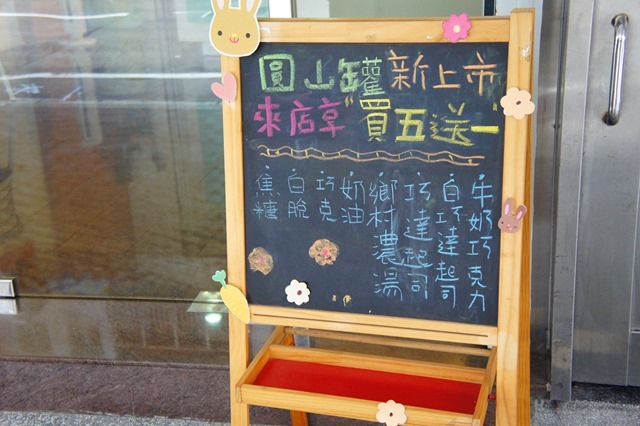 圓山罐新上市
來店享"買五送一
牛奶巧克力
白巧達起司
巧達起司
鄉村濃湯
奶油
巧克
白脫
焦糖